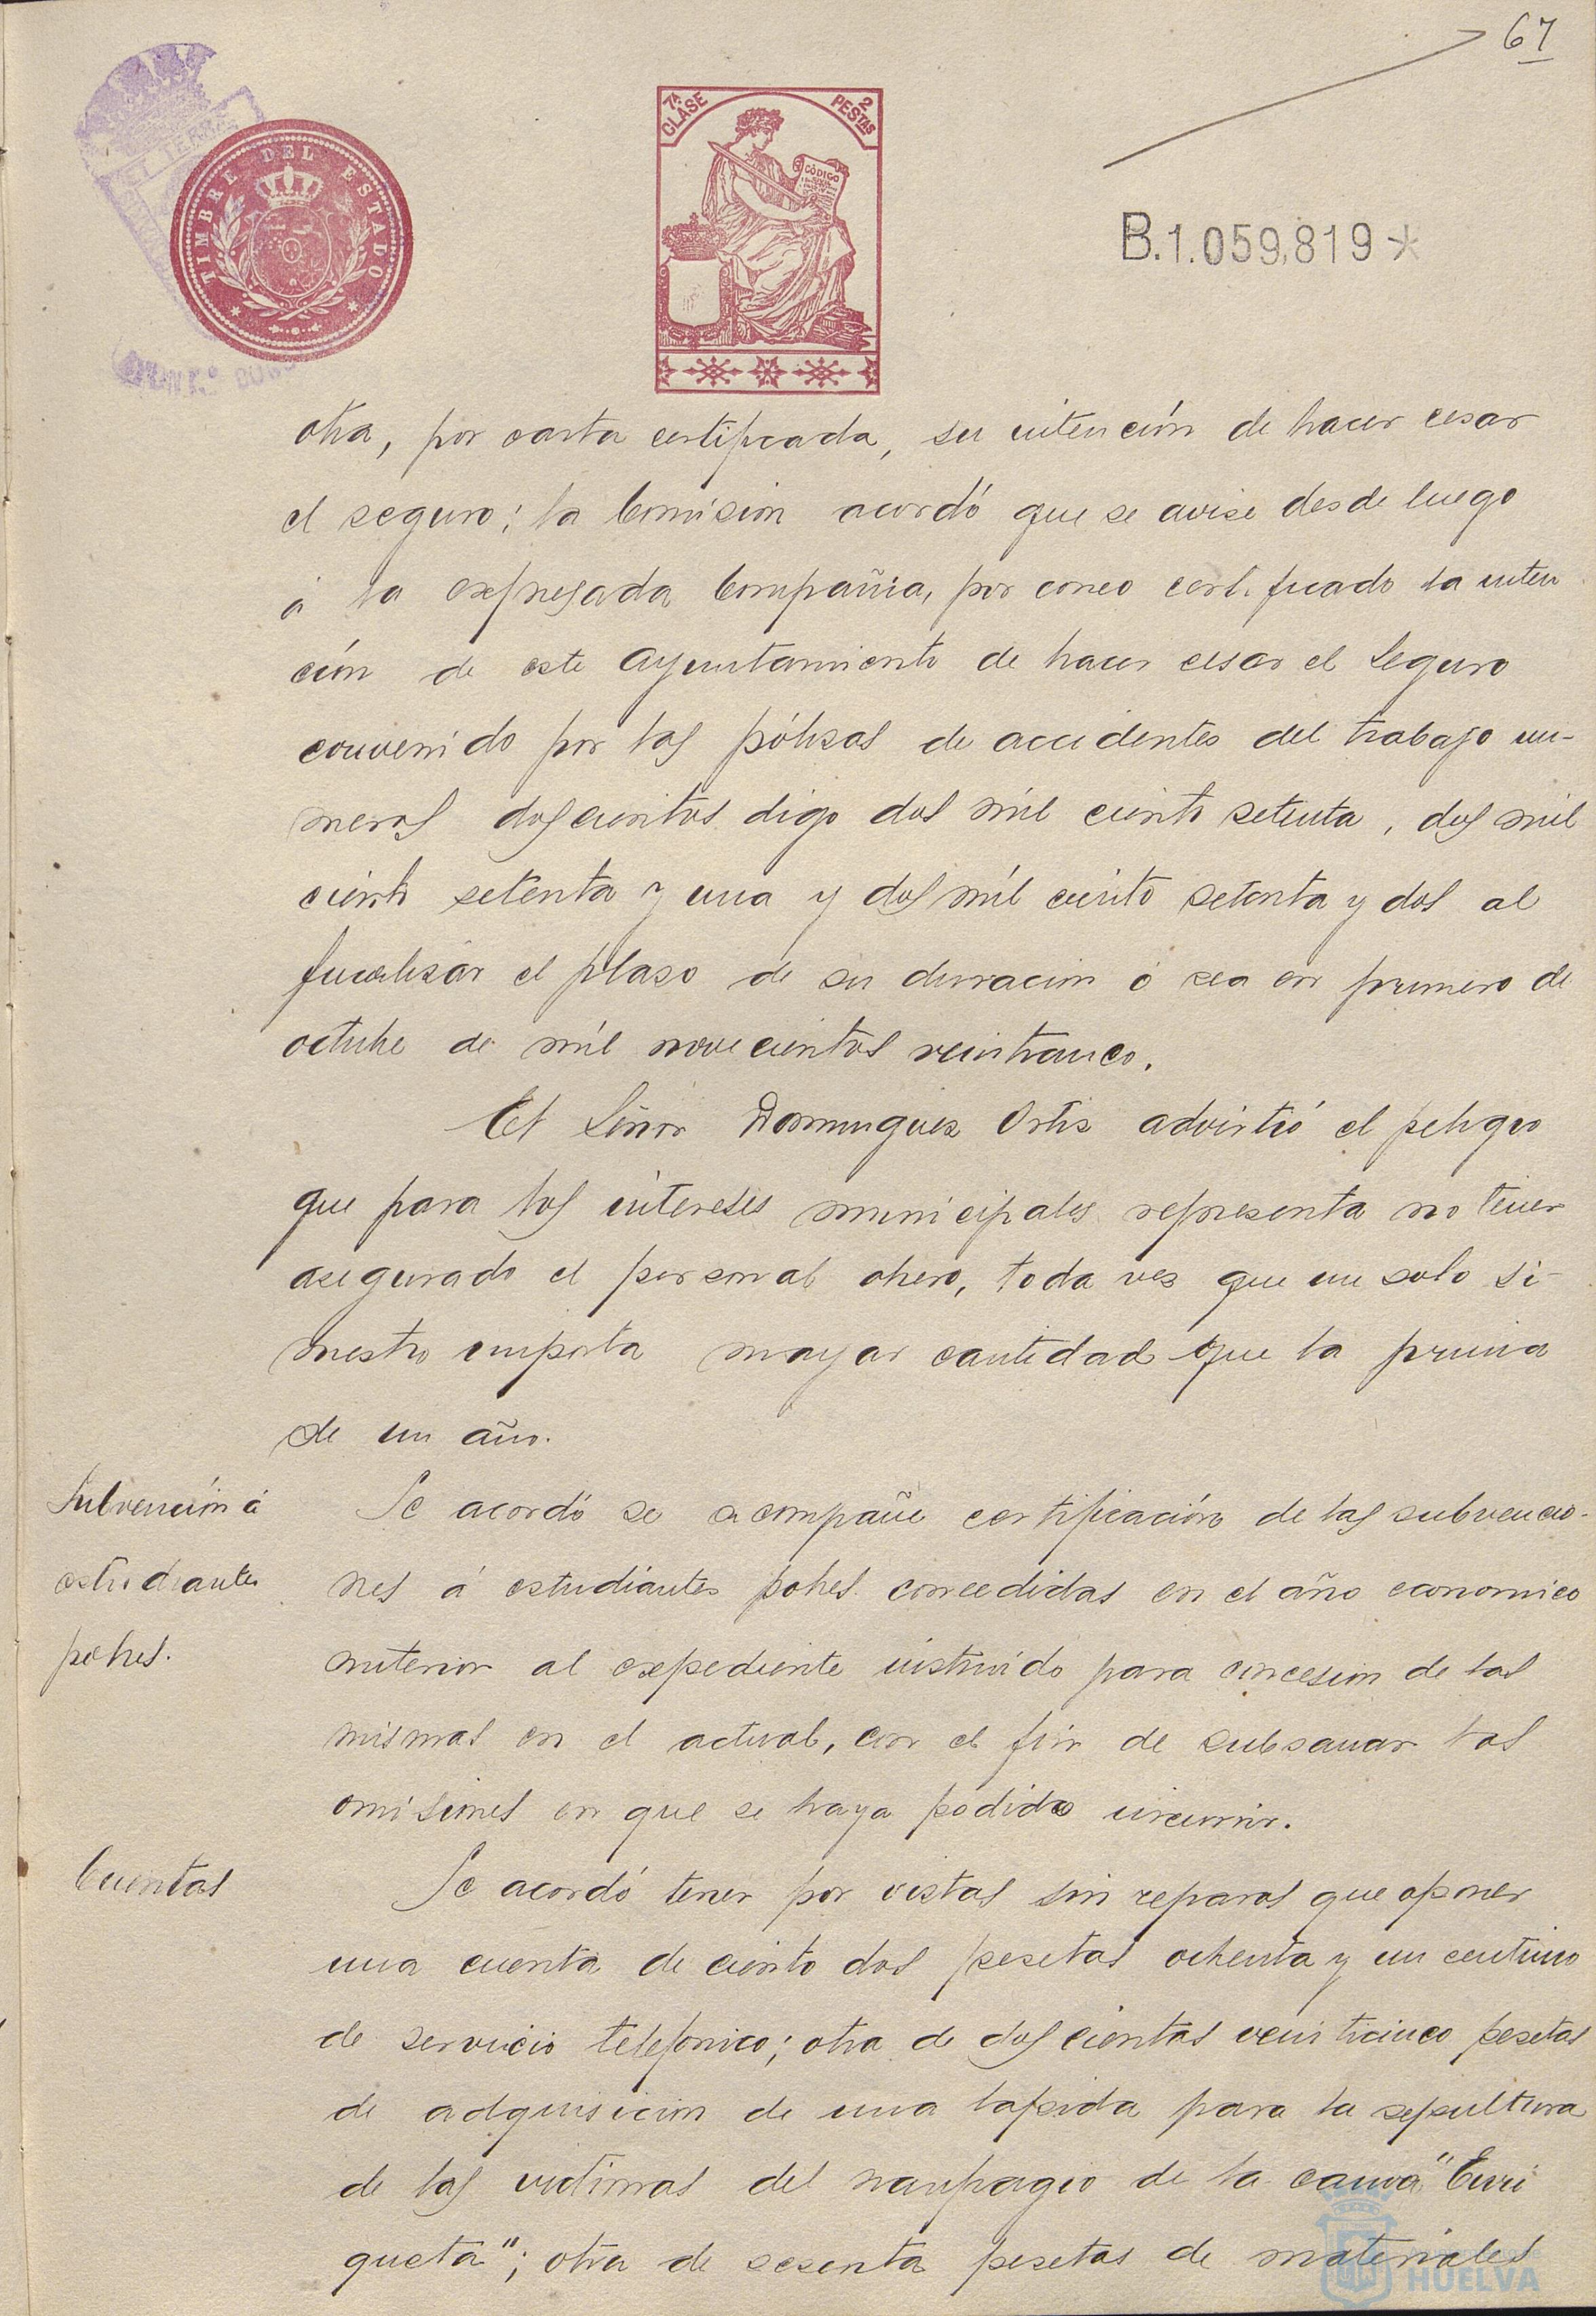 67
TIMBRE DEL ESTADO
7ª CLASE
2 PESTAS
CÓDIGO
B.1.059,819*
otra, por carta certificada, su intención de hacer cesar
el seguro; la Comisión acordó que se avise desde luego
á la expresada Compañia, por correo certificado la inten
ción de este Ayuntamiento de hacer cesar el Seguro
convenido por las pólizas de accidentes del trabajo nú-
meros doscientos digo dos mil ciento setenta, dos mil
ciento setenta y una y dos mil ciento setenta y dos al
finalizar el plazo de su duracion ó sea en primero de
octubre de mil novecientos veinticinco.
El Señor Dominguez Ortiz advirtió el peligro
que para los intereses municipales representa no tener
asegurado el personal obrero, toda vez que un solo si-
niestro importa mayor cantidad que la prima
de un año.
Subvención á
estudiantes
pobres.
Se acordó se acompañe certificación de las subvencio-
nes á estudiantes pobres concedidas en el año economico
anterior al expediente instruido para concesion de las
mismas en el actual, con el fin de subsanar las
omisiones en que se haya podido incurrir.
Cuentas
Se acordó tener por vistas sin reparos que oponer
una cuenta de ciento dos pesetas ochenta y un centimo
de servicio telefonico; otra de dos cientas veinticinco pesetas
de adquisicion de una lapida para la sepultura
de las victimas del naufragio de la canoa "Enri
queta"; otra de sesenta pesetas de materiales
HUELVA